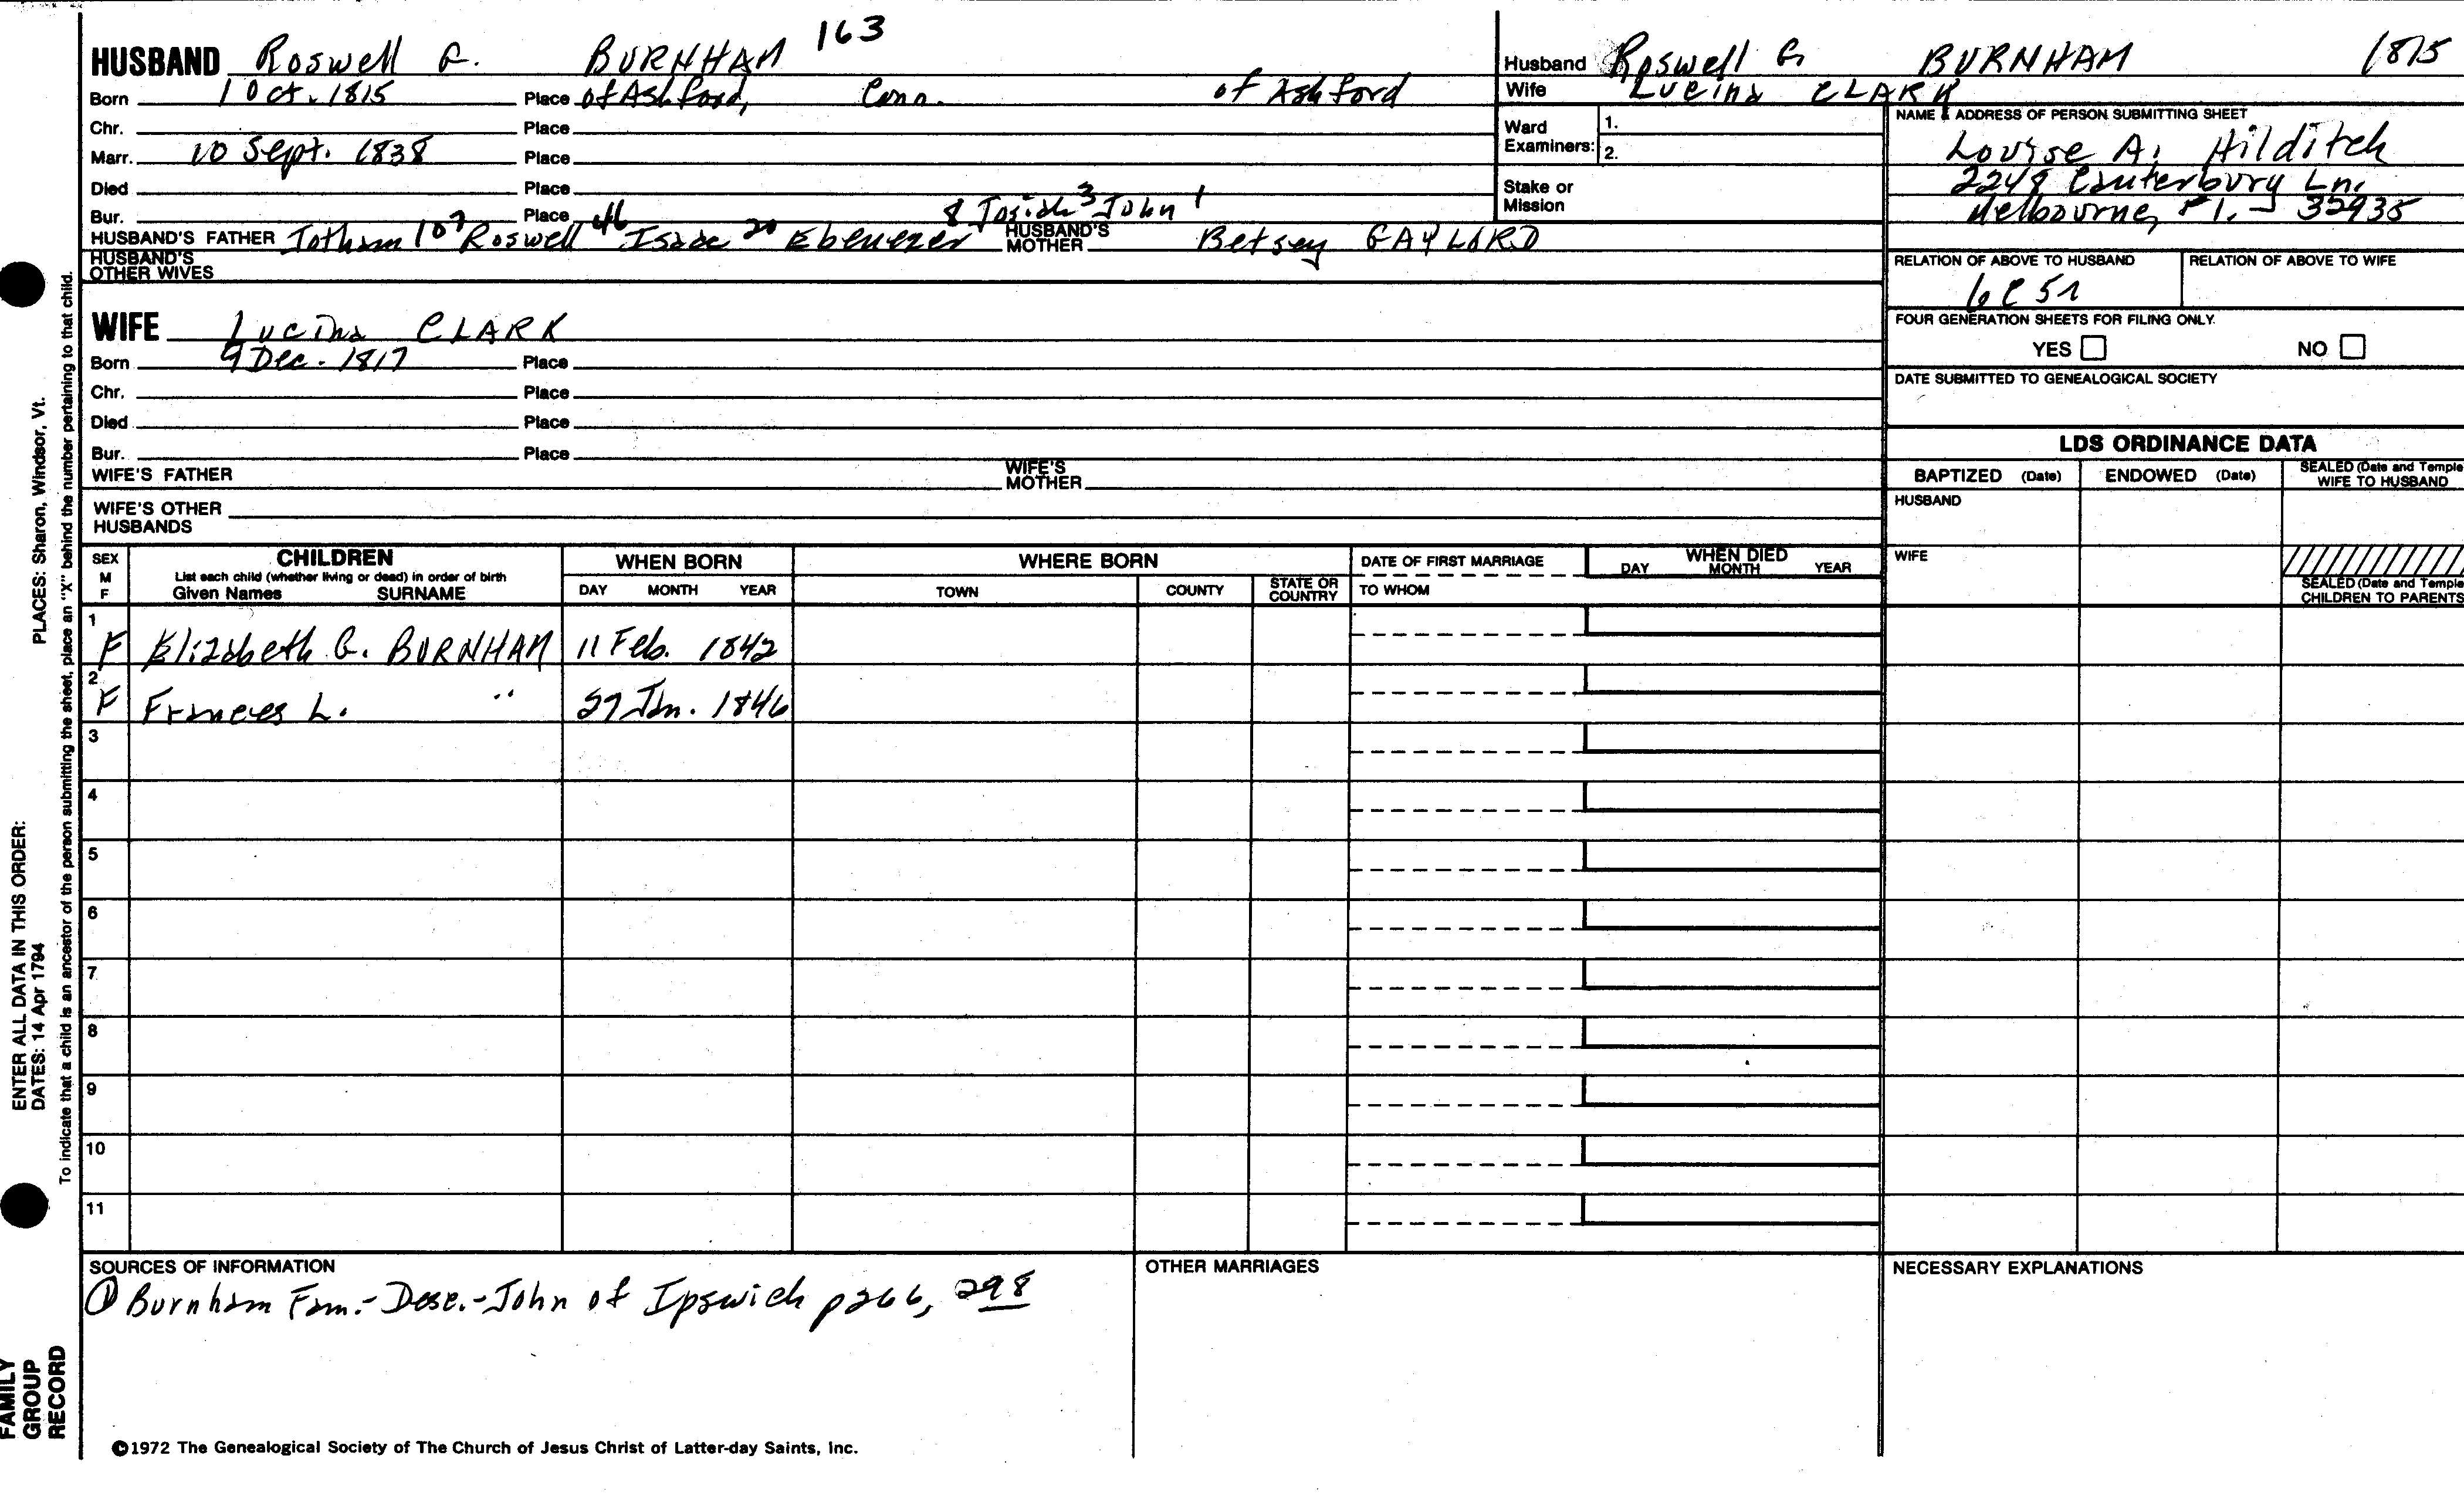 163
HUSBAND Roswell G. BURNHAM
Born 1 Oct. 1815 Place of Ashford, Conn. of Ashford
Chr. Place
Marr. 10 Sept. 1838 Place
Died Place
Bur. Place
8 Josiah 3 John 1
HUSBAND'S FATHER Jotham 107 Roswell 46 Isaac 20 Ebenezer HUSBAND'S MOTHER Betsey GAYLORD
HUSBAND'S OTHER WIVES
WIFE Lucina CLARK
Born 9 Dec. 1817 Place
Chr. Place
Died Place
Bur. Place
WIFE'S FATHER WIFE'S MOTHER
WIFE'S OTHER HUSBANDS
Husband Roswell G. BURNHAM 1815
Wife Lucina CLARK
Ward Examiners: 1.
2.
Stake or Mission
NAME & ADDRESS OF PERSON SUBMITTING SHEET
Louise A. Hilditch
2248 Canterbury Ln.
Melbourne, Fl. 32935
RELATION OF ABOVE TO HUSBAND RELATION OF ABOVE TO WIFE
6C5r
FOUR GENERATION SHEETS FOR FILING ONLY.
YES NO
DATE SUBMITTED TO GENEALOGICAL SOCIETY
LDS ORDINANCE DATA
BAPTIZED (Date) ENDOWED (Date) SEALED (Date and Temple WIFE TO HUSBAND
HUSBAND
WIFE
SEALED (Date and Temple
CHILDREN TO PARENTS
SEX M F CHILDREN WHEN BORN WHERE BORN DATE OF FIRST MARRIAGE WHEN DIED
List each child (whether living or dead) in order of birth
Given Names SURNAME DAY MONTH YEAR TOWN COUNTY STATE OR COUNTRY TO WHOM DAY MONTH YEAR
1
F Elizabeth G. BURNHAM 11 Feb. 1842
2
F Frances L. " 27 Jan. 1846
3
4
5
6
7
8
9
10
11
SOURCES OF INFORMATION
① Burnham Fam.-Desc.-John of Ipswich p266, 298
OTHER MARRIAGES
NECESSARY EXPLANATIONS
©1972 The Genealogical Society of The Church of Jesus Christ of Latter-day Saints, Inc.
FAMILY
GROUP
RECORD
ENTER ALL DATA IN THIS ORDER:
DATES: 14 Apr 1794
PLACES: Sharon, Windsor, Vt.
To indicate that a child is an ancestor of the person submitting the sheet, place an "X" behind the number pertaining to that child.